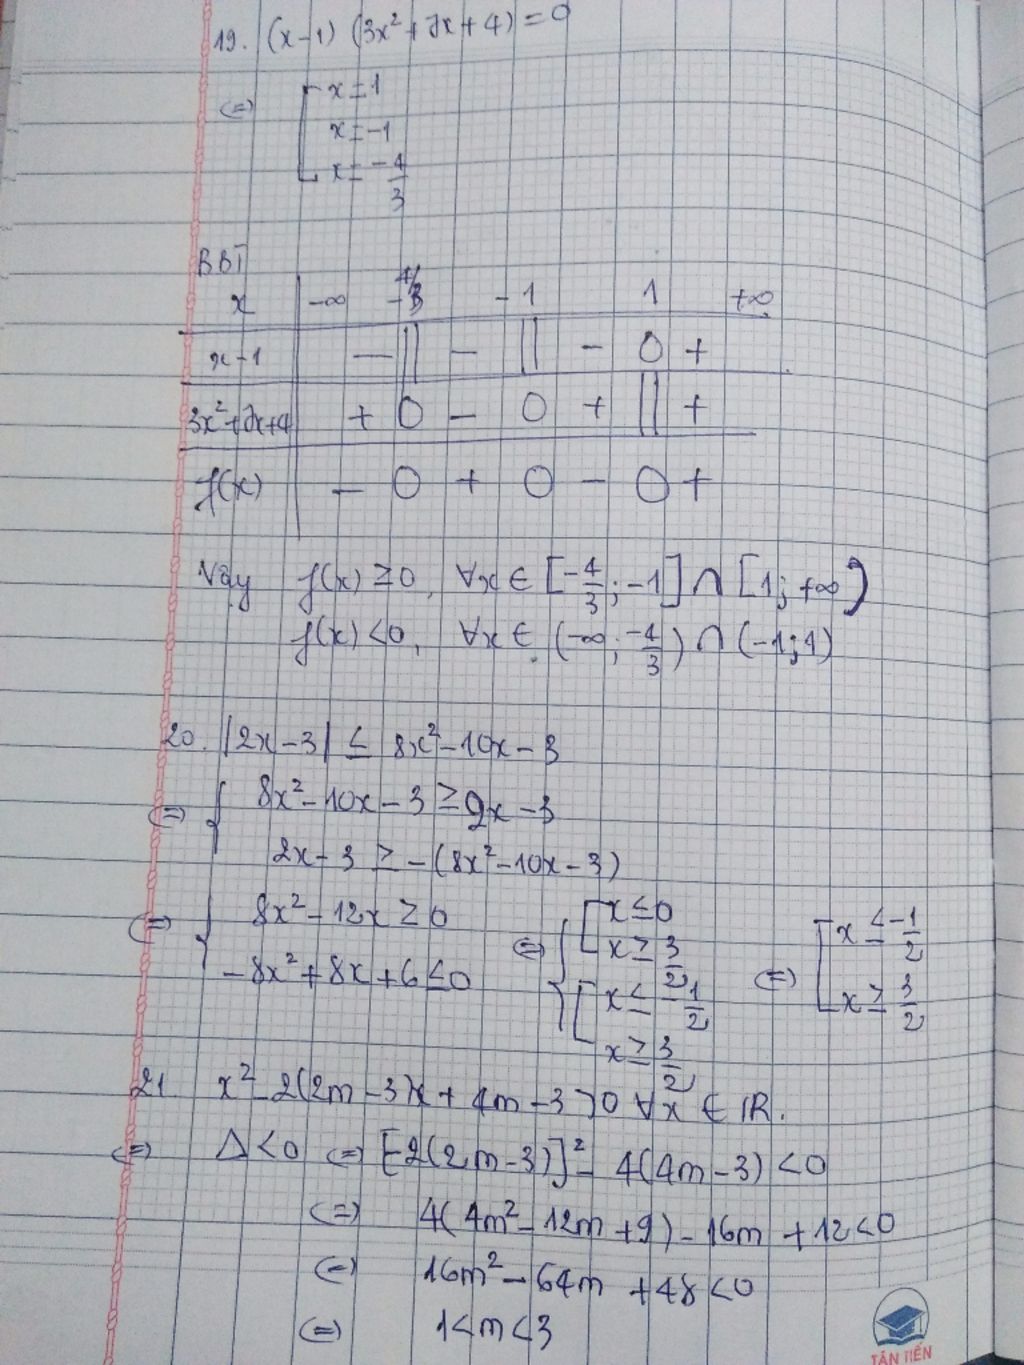 19. (x-1) (3x² + 7x + 4) = 0
(=) [ x = 1
x = -1
x = -4/3
BBT
x | -∞ -4/3 -1 1 +∞
x-1 | - || - || - 0 +
3x²+7x+4 | + 0 - 0 + || +
f(x) | - 0 + 0 - 0 +
Vậy f(x) ≥ 0, ∀x ∈ [-4/3; -1] ∩ [1; +∞)
f(x) < 0, ∀x ∈ (-∞; -4/3) ∩ (-1; 1)
20. |2x - 3| ≤ 8x² - 10x - 3
(=) { 8x² - 10x - 3 ≥ 2x - 3
2x - 3 ≥ -(8x² - 10x - 3)
(=) { 8x² - 12x ≥ 0
-8x² + 8x + 6 ≤ 0
(=) { [ x ≤ 0
x ≥ 3/2
[ x ≤ -1/2
x ≥ 3/2
(=) [ x ≤ -1/2
x ≥ 3/2
21. x² - 2(2m - 3)x + 4m - 3 > 0 ∀x ∈ IR.
(=) Δ < 0 (=) [-2(2m - 3)]² - 4(4m - 3) < 0
(=) 4(4m² - 12m + 9) - 16m + 12 < 0
(=) 16m² - 64m + 48 < 0
(=) 1 < m < 3
TÂN TIẾN